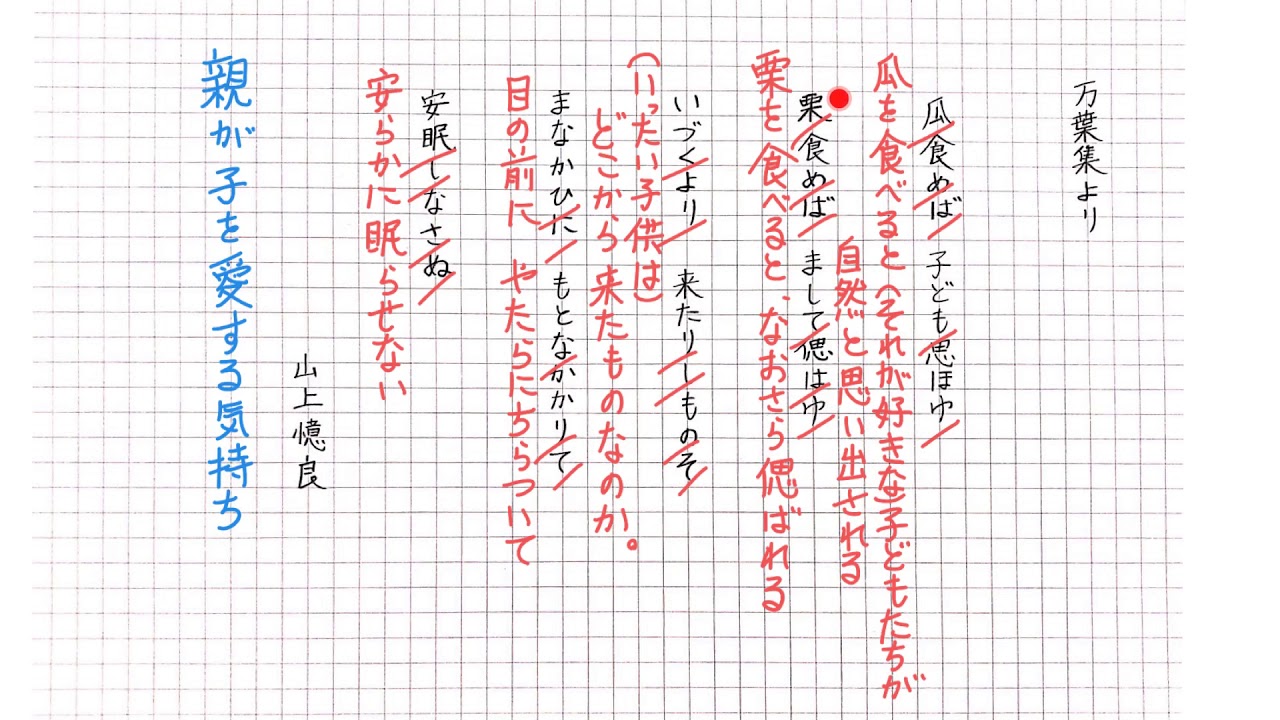 万葉集より
瓜食めば 子ども思ほゆ
瓜を食べると(それが好きな)子どもたちが
自然と思い出される
栗食めば まして偲はゆ
栗を食べると、なおさら偲ばれる
いづくより 来たりしものそ
(いったい子供は)
どこから来たものなのか。
まなかひに もとなかかりて
目の前に やたらにちらついて
安眠しなさぬ
安らかに眠らせない
山上憶良
親が子を愛する気持ち